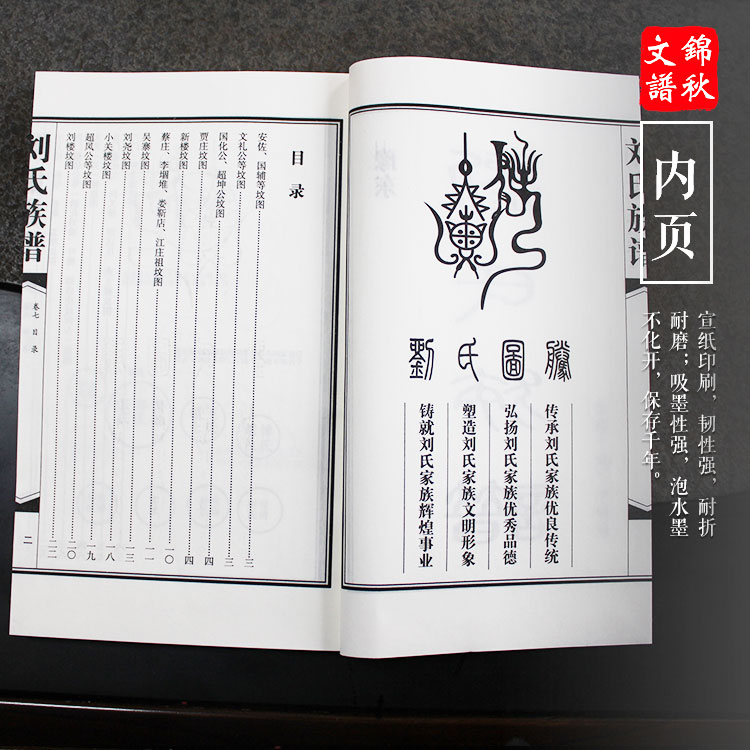 錦秋
文譜
内页
宣纸印刷，韧性强，耐折
耐磨；吸墨性强，泡水墨
不化开，保存千年。
刘氏族谱
劉氏圖騰
传承刘氏家族优良传统
弘扬刘氏家族优秀品德
塑造刘氏家族文明形象
铸就刘氏家族辉煌事业
目录
安佐、国辅等坟图 三
文礼公等坟图 三
国化公、超坤公坟图 四
贾庄坟图 四
新楼坟图 一〇
蔡庄、李堌堆、娄靳店、江庄祖坟图 一一
吴寨坟图 一三
刘尧坟图 一八
小关楼坟图 一九
超凤公等坟图 二〇
刘楼坟图 二二
刘氏族谱
卷七 目录
二